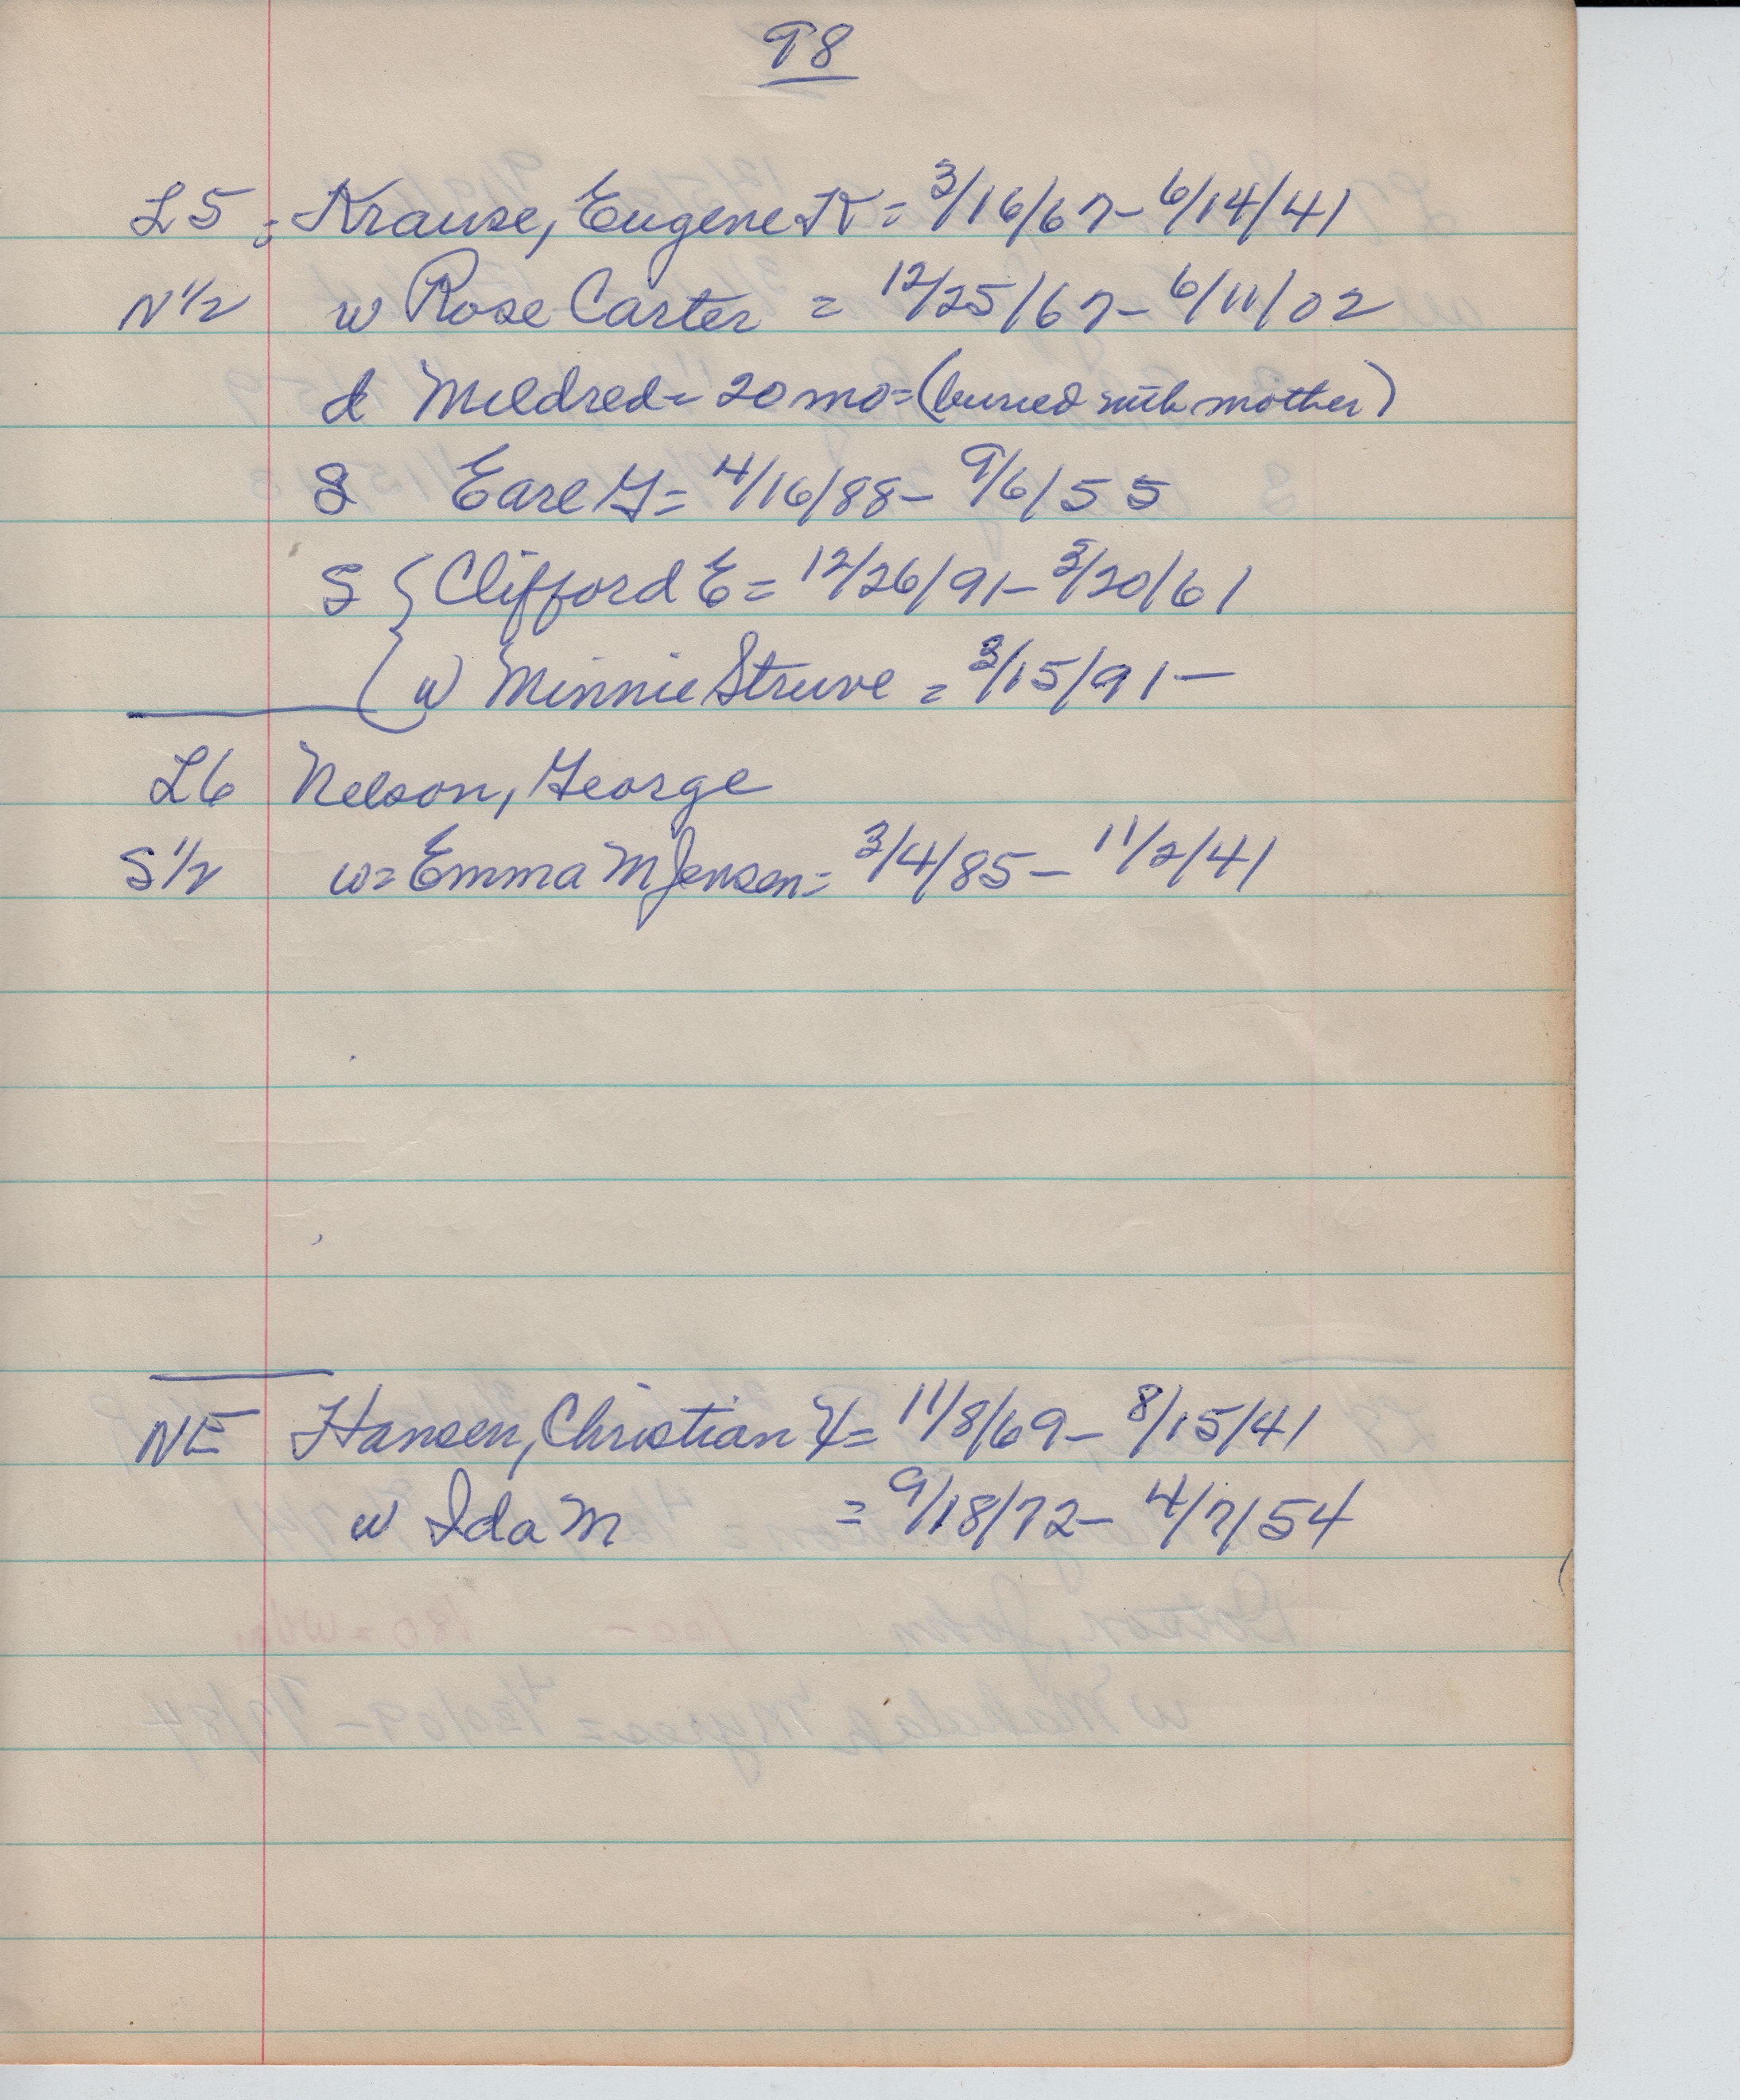 98
L5 : Krause, Eugene K = 3/16/67 - 6/14/41
N 1/2 w Rose Carter = 12/25/67 - 6/11/02
d Mildred = 20 mo = (buried with mother)
S Earl G = 4/16/88 - 9/6/55
S { Clifford E = 12/26/91 - 3/20/61
w Minnie Struve = 3/15/91 -
L6 Nelson, George
S 1/2 w = Emma M Jensen = 3/4/85 - 11/2/41
NE Hansen, Christian = 11/8/69 - 8/15/41
w Ida M = 9/18/72 - 4/7/54